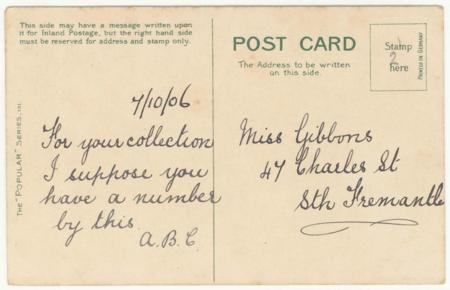 This side may have a message written upon
it for Inland Postage, but the right hand side
must be reserved for address and stamp only.
POST CARD
The Address to be written
on this side.
Stamp
2
here
PRINTED IN GERMANY
THE "POPULAR" SERIES, 111.
7/10/06
For your collection
I suppose you
have a number
by this.
A.B.C.
Miss Gibbons
47 Charles St
Sth Fremantle